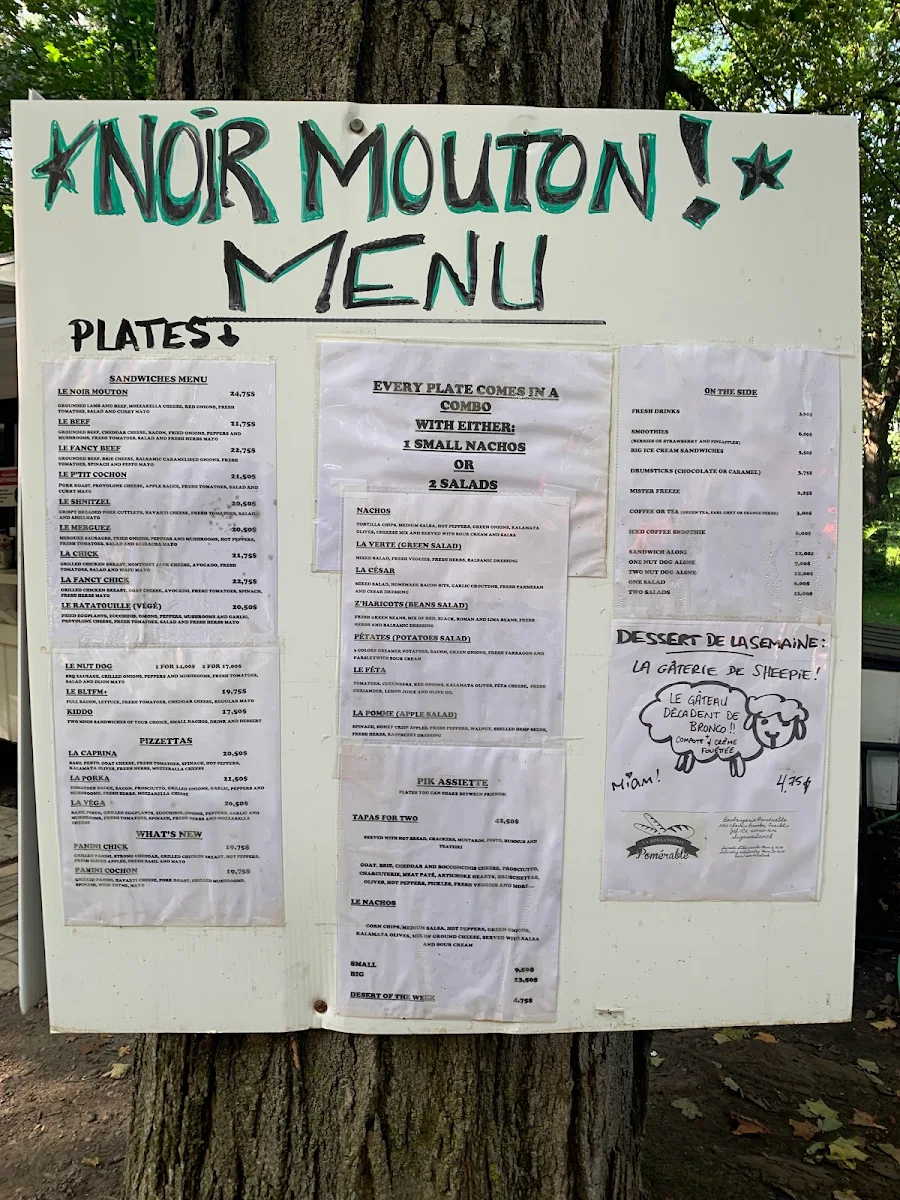 NOIR MOUTON!
MENU
PLATES
SANDWICHES MENU
LE NOIR MOUTON 24,75$
GROUNDED LAMB AND BEEF, MOZZARELLA CHEESE, RED ONIONS, FRESH
TOMATOES, SALAD AND CURRY MAYO
LE BEEF 21,75$
GROUNDED BEEF, CHEDDAR CHEESE, BACON, FRIED ONIONS, PEPPERS AND
MUSHROOMS, FRESH TOMATOES, SALAD AND FRESH HERBS MAYO
LE FANCY BEEF 22,75$
GROUNDED BEEF, BRIE CHEESE, BALSAMIC CARAMELISED ONIONS, FRESH
TOMATOES, SPINACH AND PESTO MAYO
LE P'TIT COCHON 21,50$
PORK ROAST, PROVOLONE CHEESE, APPLE SAUCE, FRESH TOMATOES, SALAD AND
CURRY MAYO
LE SHNITZEL 20,50$
CRISPY BREADED PORK CUTTLETS, HAVARTI CHEESE, FRESH TOMATOES, SALAD
AND AIOLI MAYO
LE MERGUEZ 20,50$
MERGUEZ SAUSAGES, FRIED ONIONS, PEPPERS AND MUSHROOMS, HOT PEPPERS,
FRESH TOMATOES, SALAD AND SRIRACHA MAYO
LA CHICK 21,75$
GRILLED CHICKEN BREAST, MONTEREY JACK CHEESE, AVOCADO, FRESH
TOMATOES, SALAD AND MAYO
LA FANCY CHICK 22,75$
GRILLED CHICKEN BREAST, GOAT CHEESE, AVOCADO, FRESH TOMATOES, SPINACH,
FRESH HERB MAYO
LE RATATOUILLE (VÉGÉ) 20,50$
FRIED EGGPLANTS, ZUCCHINIS, ONIONS, PEPPERS, MUSHROOMS AND GARLIC,
PROVOLONE CHEESE, FRESH TOMATOES, SALAD AND FRESH HERBS MAYO
LE NUT DOG 1 FOR 14,00$ 2 FOR 17,00$
BBQ SAUSAGE, GRILLED ONIONS, PEPPERS AND MUSHROOMS, FRESH TOMATOES,
SALAD AND DIJON MAYO
LE BLTFM+ 19,75$
FULL BACON, LETTUCE, FRESH TOMATOES, CHEDDAR CHEESE, REGULAR MAYO
KIDDO 17,50$
TWO MINIS SANDWICHES OF YOUR CHOICE, SMALL NACHOS, DRINK AND DESSERT
PIZZETTAS
LA CAPRINA 20,50$
BASIL PESTO, GOAT CHEESE, FRESH TOMATOES, SPINACH, HOT PEPPERS,
KALAMATA OLIVES, FRESH HERBS, MOZZERALLA CHEESE
LA PORKA 21,50$
TOMATOES SAUCE, BACON, PROSCIUTTO, GRILLED ONIONS, GARLIC, PEPPERS AND
MUSHROOMS, FRESH HERBS, MOZZARELLA CHEESE
LA VÉGA 20,50$
BASIL PESTO, GRILLED EGGPLANTS, ZUCCHINIS, ONIONS, PEPPERS, GARLIC AND
MUSHROOMS, FRESH TOMATOES, SPINACH, FRESH HERBS AND MOZZARELLA
CHEESE
WHAT'S NEW
PANINI CHICK 19,75$
GRILLED PANINI, STRONG CHEDDAR, GRILLED CHICKEN BREAST, HOT PEPPERS,
FRESH SLICED APPLES, FRESH BASIL AND MAYO
PANINI COCHON 19,75$
GRILLED PANINI, HAVARTI CHEESE, PORK ROAST, GRILLED MUSHROOMS,
SPINACH, WILD THYME, MAYO
EVERY PLATE COMES IN A
COMBO
WITH EITHER:
1 SMALL NACHOS
OR
2 SALADS
NACHOS
TORTILLA CHIPS, MEDIUM SALSA, HOT PEPPERS, GREEN ONIONS, KALAMATA
OLIVES, CHEEZES MIX AND SERVED WITH SOUR CREAM AND SALSA
LA VERTE (GREEN SALAD)
MIXED SALAD, FRESH VEGGIES, FRESH HERBS, BALSAMIC DRESSING
LA CÉSAR
MIXED SALAD, HOMEMADE BACON BITS, GARLIC CROUTONS, FRESH PARMESAN
AND CESAR DRESSING
Z'HARICOTS (BEANS SALAD)
FRESH GREEN BEANS, MIX OF RED, BLACK, ROMAN AND LIMA BEANS, FRESH
HERBS AND BALSAMIC DRESSING
PÉTATES (POTATOES SALAD)
2 COLORS CREAMER POTATOES, BACON, GREEN ONIONS, FRESH TARRAGON AND
PARSLEY WITH SOUR CREAM
LE FÉTA
TOMATOES, CUCUMBERS, RED ONIONS, KALAMATA OLIVES, FÉTA CHEESE, FRESH
CORIANDER, LEMON JUICE AND OLIVE OIL
LA POMME (APPLE SALAD)
SPINACH, HONEY CRISP APPLES, FRESH PEPPERS, WALNUT, SHELLED HEMP SEEDS,
FRESH HERBS, RASPBERRY DRESSING
PIK ASSIETTE
PLATES YOU CAN SHARE BETWEEN FRIENDS!
TAPAS FOR TWO 42,50$
SERVED WITH HOT BREAD, CRACKERS, MUSTARDS, PESTO, HUMMUS AND
TZATZIKI
GOAT, BRIE, CHEDDAR AND BOCCONCINIS CHEESE, PROSCIUTTO,
CHARCUTERIE, MEAT PATÉ, ARTICHOKE HEARTS, BRUSCHETTAS,
OLIVES, HOT PEPPERS, PICKLES, FRESH VEGGIES AND MORE...
LE NACHOS
CORN CHIPS, MEDIUM SALSA, HOT PEPPERS, GREEN ONIONS,
KALAMATA OLIVES, MIX OF GROUND CHEESE, SERVED WITH SALSA
AND SOUR CREAM
SMALL 9,50$
BIG 13,50$
DESERT OF THE WEEK 4,75$
ON THE SIDE
FRESH DRINKS
SMOOTHIES 6,00$
(BERRIES OR STRAWBERRY AND PINEAPPLE)
BIG ICE CREAM SANDWICHES 3,50$
DRUMSTICKS (CHOCOLATE OR CARAMEL) 3,75$
MISTER FREEZE 2,25$
COFFEE OR TEA (GREEN TEA, EARL GREY OR ORANGE PEKOE) 3,00$
ICED COFFEE SMOOTHIE 6,00$
SANDWICH ALONE 12,00$
ONE NUT DOG ALONE 7,00$
TWO NUT DOG ALONE 12,00$
ONE SALAD 6,00$
TWO SALADS 12,00$
DESSERT DE LA SEMAINE:
LA GÂTERIE DE SHEEPIE!
LE GÂTEAU
DÉCADENT DE
BRONCO!!
COMPOTE & CRÈME
FOUETTÉE
MIAM! 4,75$
LA BOULANGERIE
Pomérable
Boulangerie Pomérable